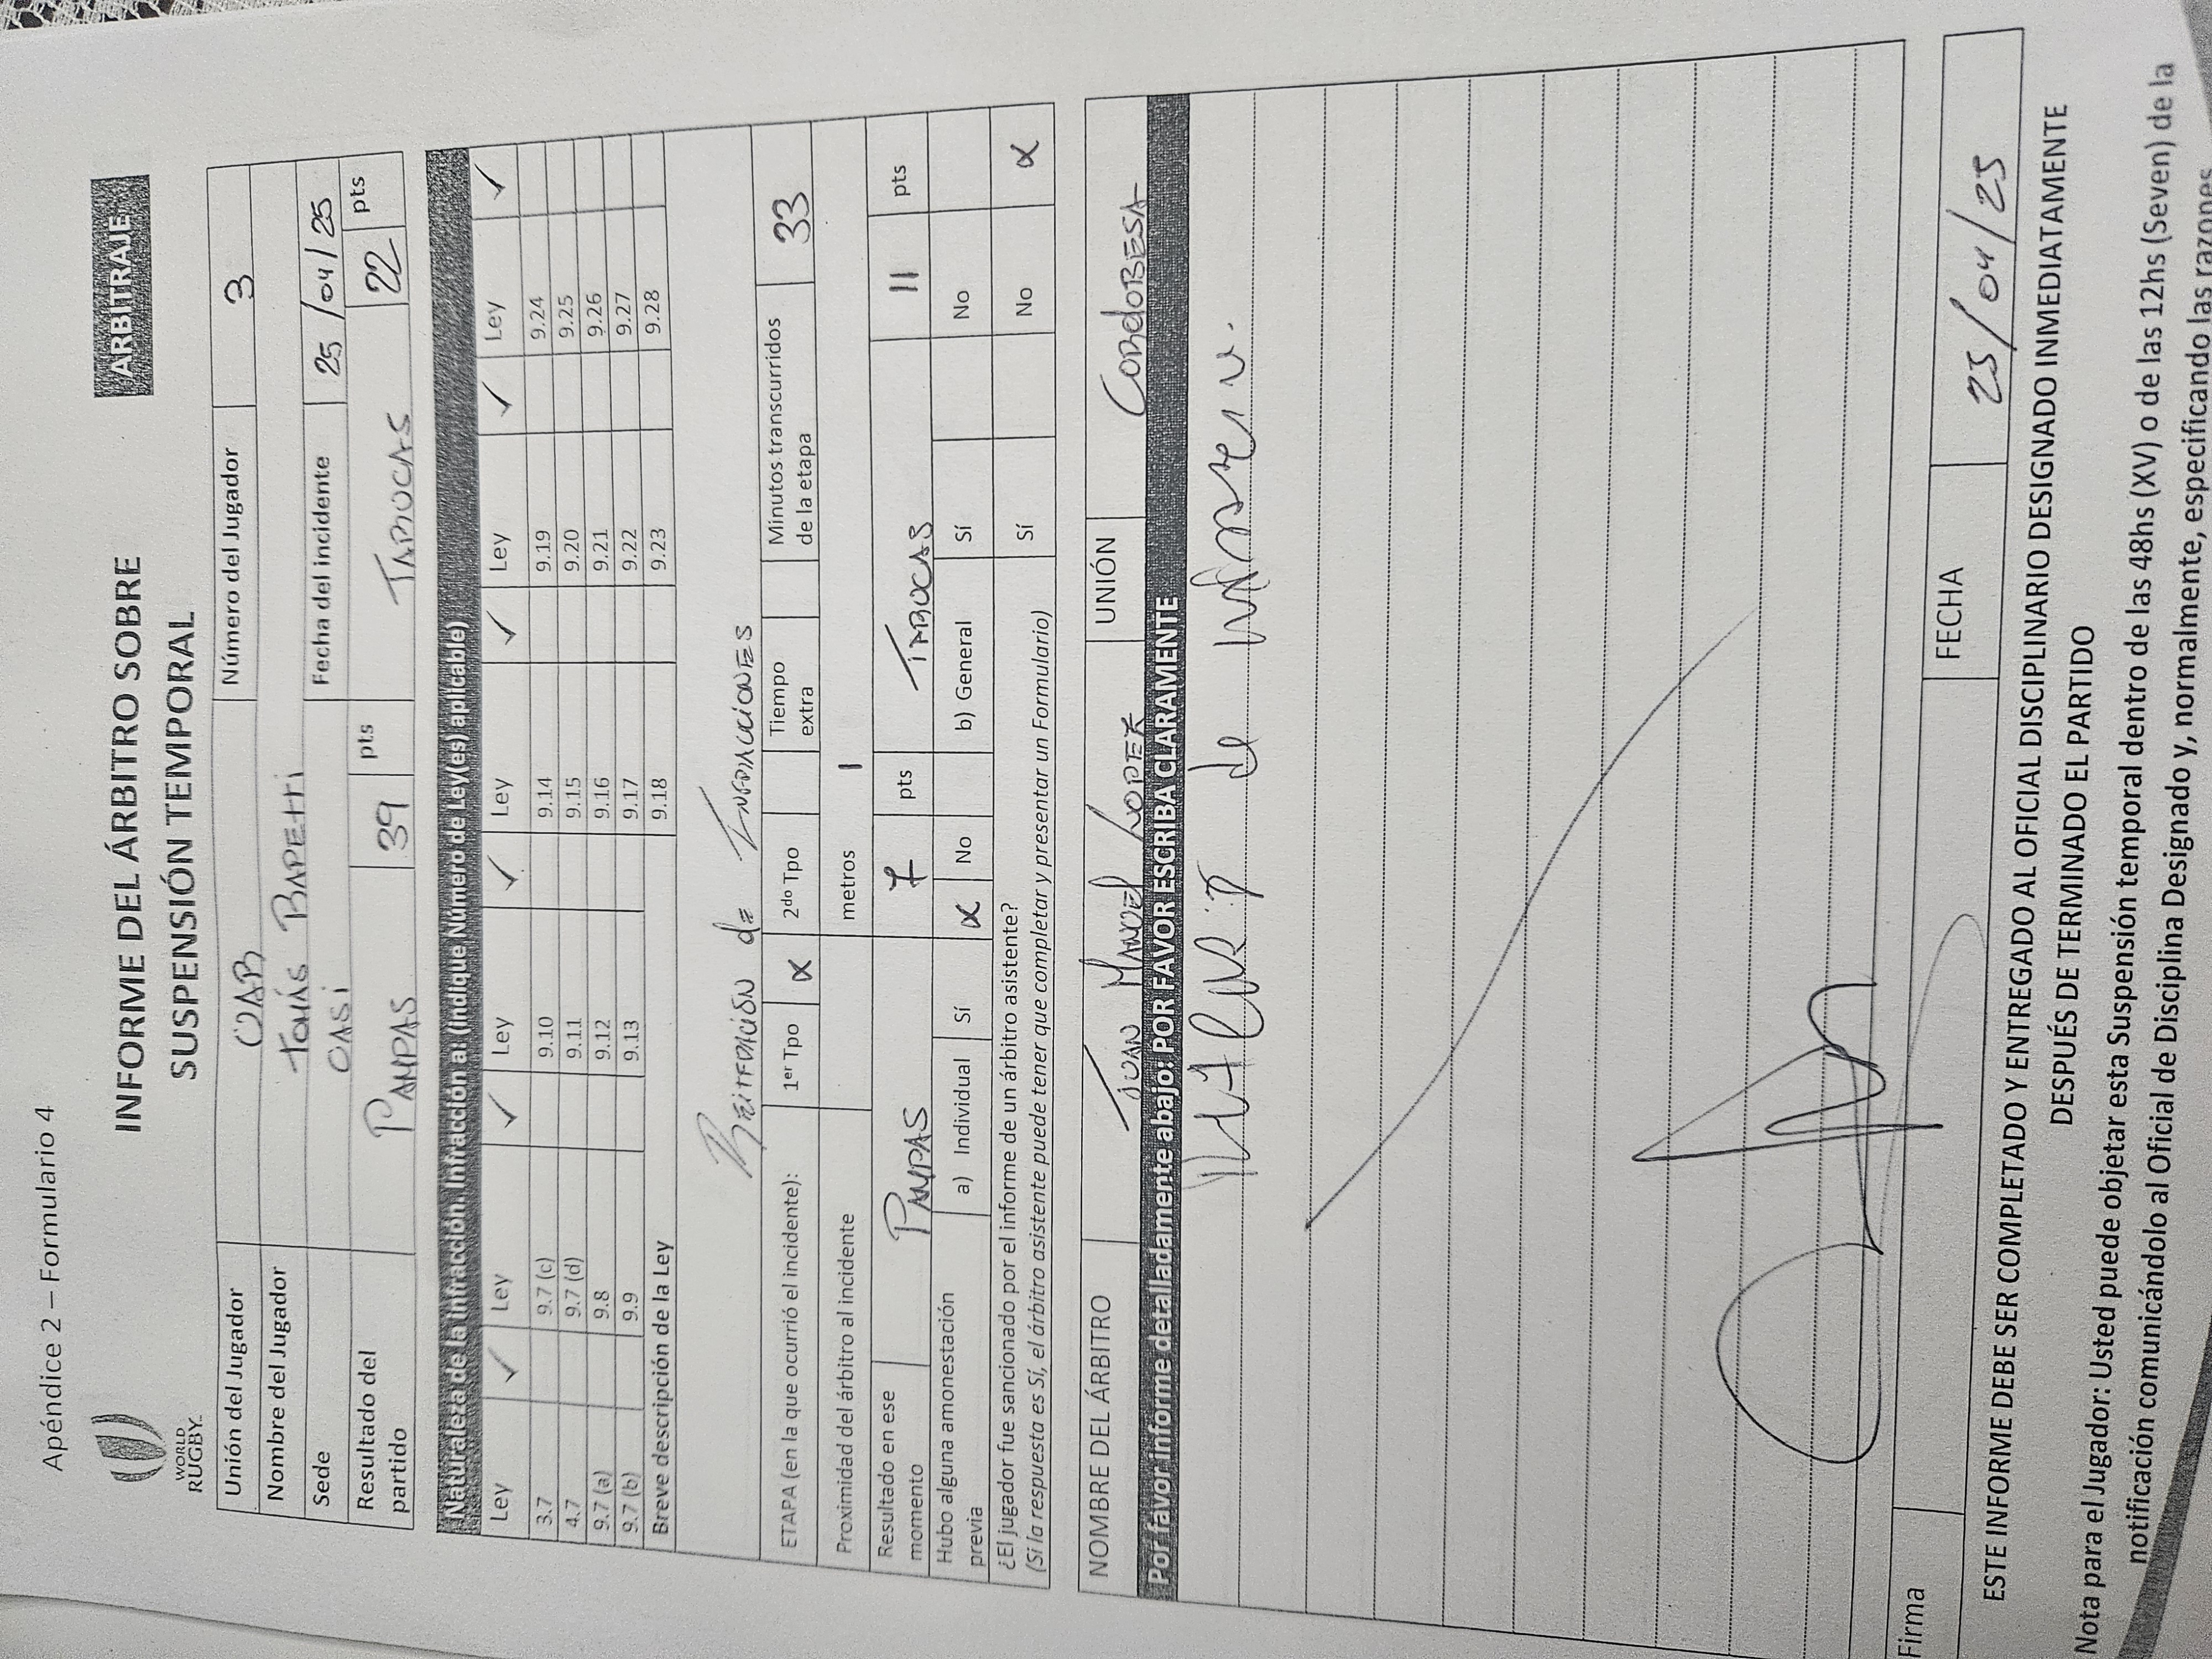 Apéndice 2 – Formulario 4
WORLD RUGBY
INFORME DEL ÁRBITRO SOBRE
SUSPENSIÓN TEMPORAL
ARBITRAJE
Unión del Jugador UAR Número del Jugador 3
Nombre del Jugador Tomás
Sede CASI Fecha del incidente 25/04/25
Resultado del partido PAMPAS 39 pts 22 pts
Naturaleza de la infracción. Infracción al (indique Número de Ley(es) aplicable)
Ley ✓ Ley ✓ Ley ✓ Ley ✓ Ley ✓ Ley ✓
3.7 9.7 (c) 9.10 9.14 9.19 9.24
4.7 9.7 (d) 9.11 9.15 9.20 9.25
9.7 (a) 9.8 9.12 9.16 9.21 9.26
9.7 (b) 9.9 9.13 9.17 9.22 9.27
Breve descripción de la Ley 9.18 9.23 9.28
de
ETAPA (en la que ocurrió el incidente): 1er Tpo X 2do Tpo Tiempo extra Minutos transcurridos de la etapa 33
Proximidad del árbitro al incidente metros 1
Resultado en ese momento PAMPAS 7 pts 11 pts
Hubo alguna amonestación previa a) Individual Sí X No b) General Sí No
¿El jugador fue sancionado por el informe de un árbitro asistente? Sí No X
(Si la respuesta es Sí, el árbitro asistente puede tener que completar y presentar un Formulario)
NOMBRE DEL ÁRBITRO JUAN MANUEL LOPEZ UNIÓN CORDOBESA
Por favor informe detalladamente abajo: POR FAVOR ESCRIBA CLARAMENTE
de
Firma FECHA 25/04/25
ESTE INFORME DEBE SER COMPLETADO Y ENTREGADO AL OFICIAL DISCIPLINARIO DESIGNADO INMEDIATAMENTE
DESPUÉS DE TERMINADO EL PARTIDO
Nota para el Jugador: Usted puede objetar esta Suspensión temporal dentro de las 48hs (XV) o de las 12hs (Seven) de la
notificación comunicándolo al Oficial de Disciplina Designado y, normalmente, especificando las razones